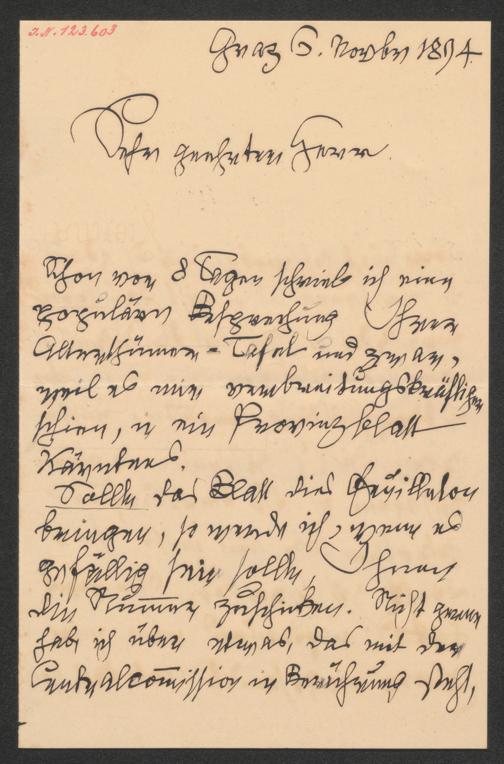 I.N. 123.603
Graz 5. Novbr 1894.
Sehr geehrter Herr
Schon vor 8 Tagen schrieb ich eine
populäre Besprechung Ihrer
Alterthümer-Tafel und zwar,
weil es mir verbreitungskräftiger
schien, in ein Provinzblatt
Kärntens.
Sollte das Blatt dies Feuilleton
bringen, so werde ich, wenn es
gefällig sein sollte, Ihnen
die Nummer zuschicken. Nicht gerne
hab ich über etwas, das mit der
Centralcommission in Berührung steht,